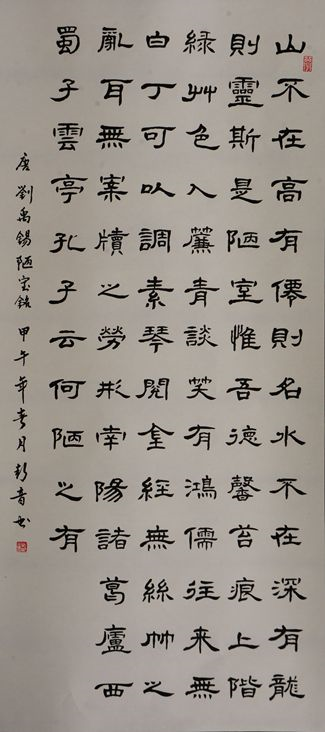 山不在高有僊則名水不在深有龍
則靈斯是陋室惟吾德馨苔痕上階
綠艸色入簾青談笑有鴻儒往来無
白丁可以調素琴閱金經無絲竹之
亂耳無案牘之勞形南陽諸葛廬西
蜀子雲亭孔子云何陋之有
唐劉禹錫陋室銘 甲午年春月